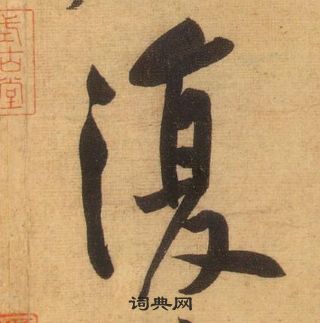 復
式古堂
词典网